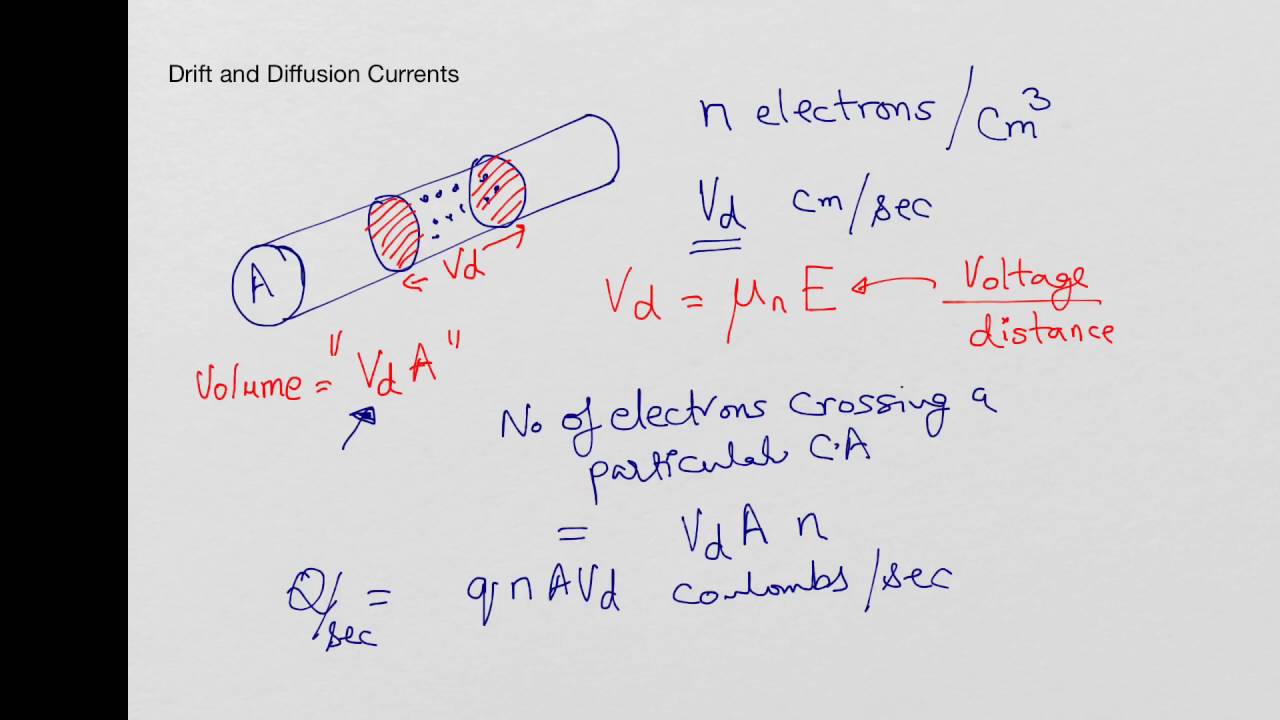 Drift and Diffusion Currents
n electrons / cm³
Vd cm/sec
A
← Vd →
Vd = μn E ← Voltage
distance
Volume = "Vd A"
No of electrons crossing a
particular C.A
= Vd A n
Q/sec = q n A Vd coulombs/sec